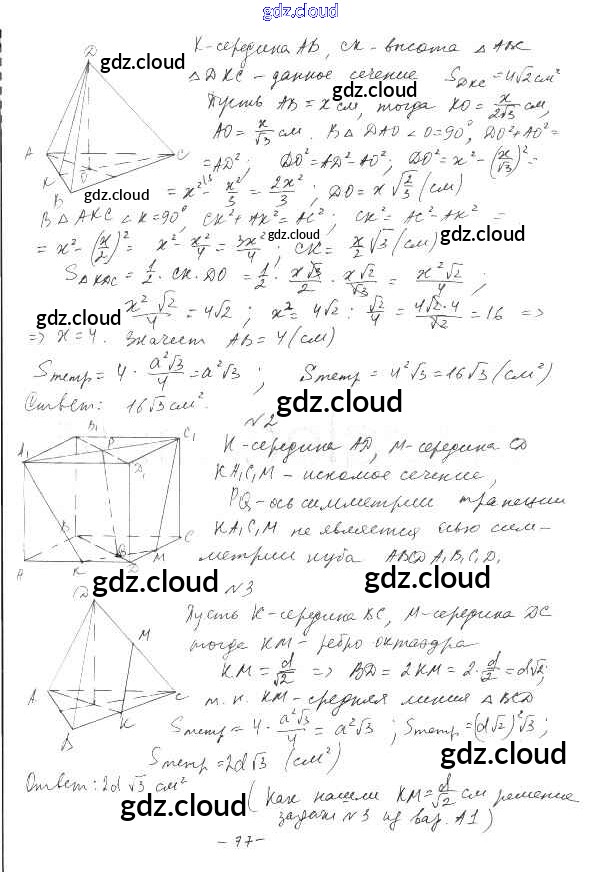 gdz.cloud
K-середина AB, CK-высота △ABC
gdz.cloud
△DKC - данное сечение S△DKC = 4√2 см²
Пусть AB = x см, тогда KO = x/2√3 см,
AO = x/√3 см. В △DAO ∠O=90°, DO²+AO²=
= AD²; DO²=AD²-AO²; DO²= x² - (x/√3)² =
gdz.cloud
= x² - x²/3 = 2x²/3; DO = x √2/3 (см)
В △AKC ∠K=90°, CK²+AK²=AC²; CK²=AC²-AK² =
gdz.cloud
= x² - (x/2)² = x² - x²/4 = 3x²/4; CK = x/2 √3 (см)
S△KDC = 1/2 · CK · DO = 1/2 · x√3/2 · x√2/√3 = x²√2/4;
gdz.cloud
x²√2/4 = 4√2; x² = 4√2 : √2/4 = 4√2·4/√2 = 16 =>
=> x = 4. Значит AB = 4 (см)
Sтетр = 4 · a²√3/4 = a²√3; Sтетр = 4²√3 = 16√3 (см²)
Ответ: 16√3 см².
gdz.cloud
N2
K-середина AD, M-середина CD
KA₁C₁M - искомое сечение,
gdz.cloud
PQ-ось симметрии трапеции
KA₁C₁M не является осью сим-
метрии куба ABCDA₁B₁C₁D₁
gdz.cloud
gdz.cloud
N3
Пусть K-середина BC, M-середина DC
тогда KM - ребро октаэдра
KM = d/√2 => BD = 2KM = 2·d/2 = d√2;
gdz.cloud
т.к. KM-средняя линия △BCD
Sтетр = 4 · a²√3/4 = a²√3; Sтетр = (d√2)²√3;
gdz.cloud
Sтетр = 2d√3 (см²)
gdz.cloud
Ответ: 2d √3 см²
gdz.cloud
(Как нашли KM = d/√2 см решение
задачи N3 из вар. A1)
gdz.cloud
- 77 -
A
B
C
D
K
O
A₁
B₁
C₁
D₁
P
A
B
C
D
K
M
Q
D
A
B
C
K
M